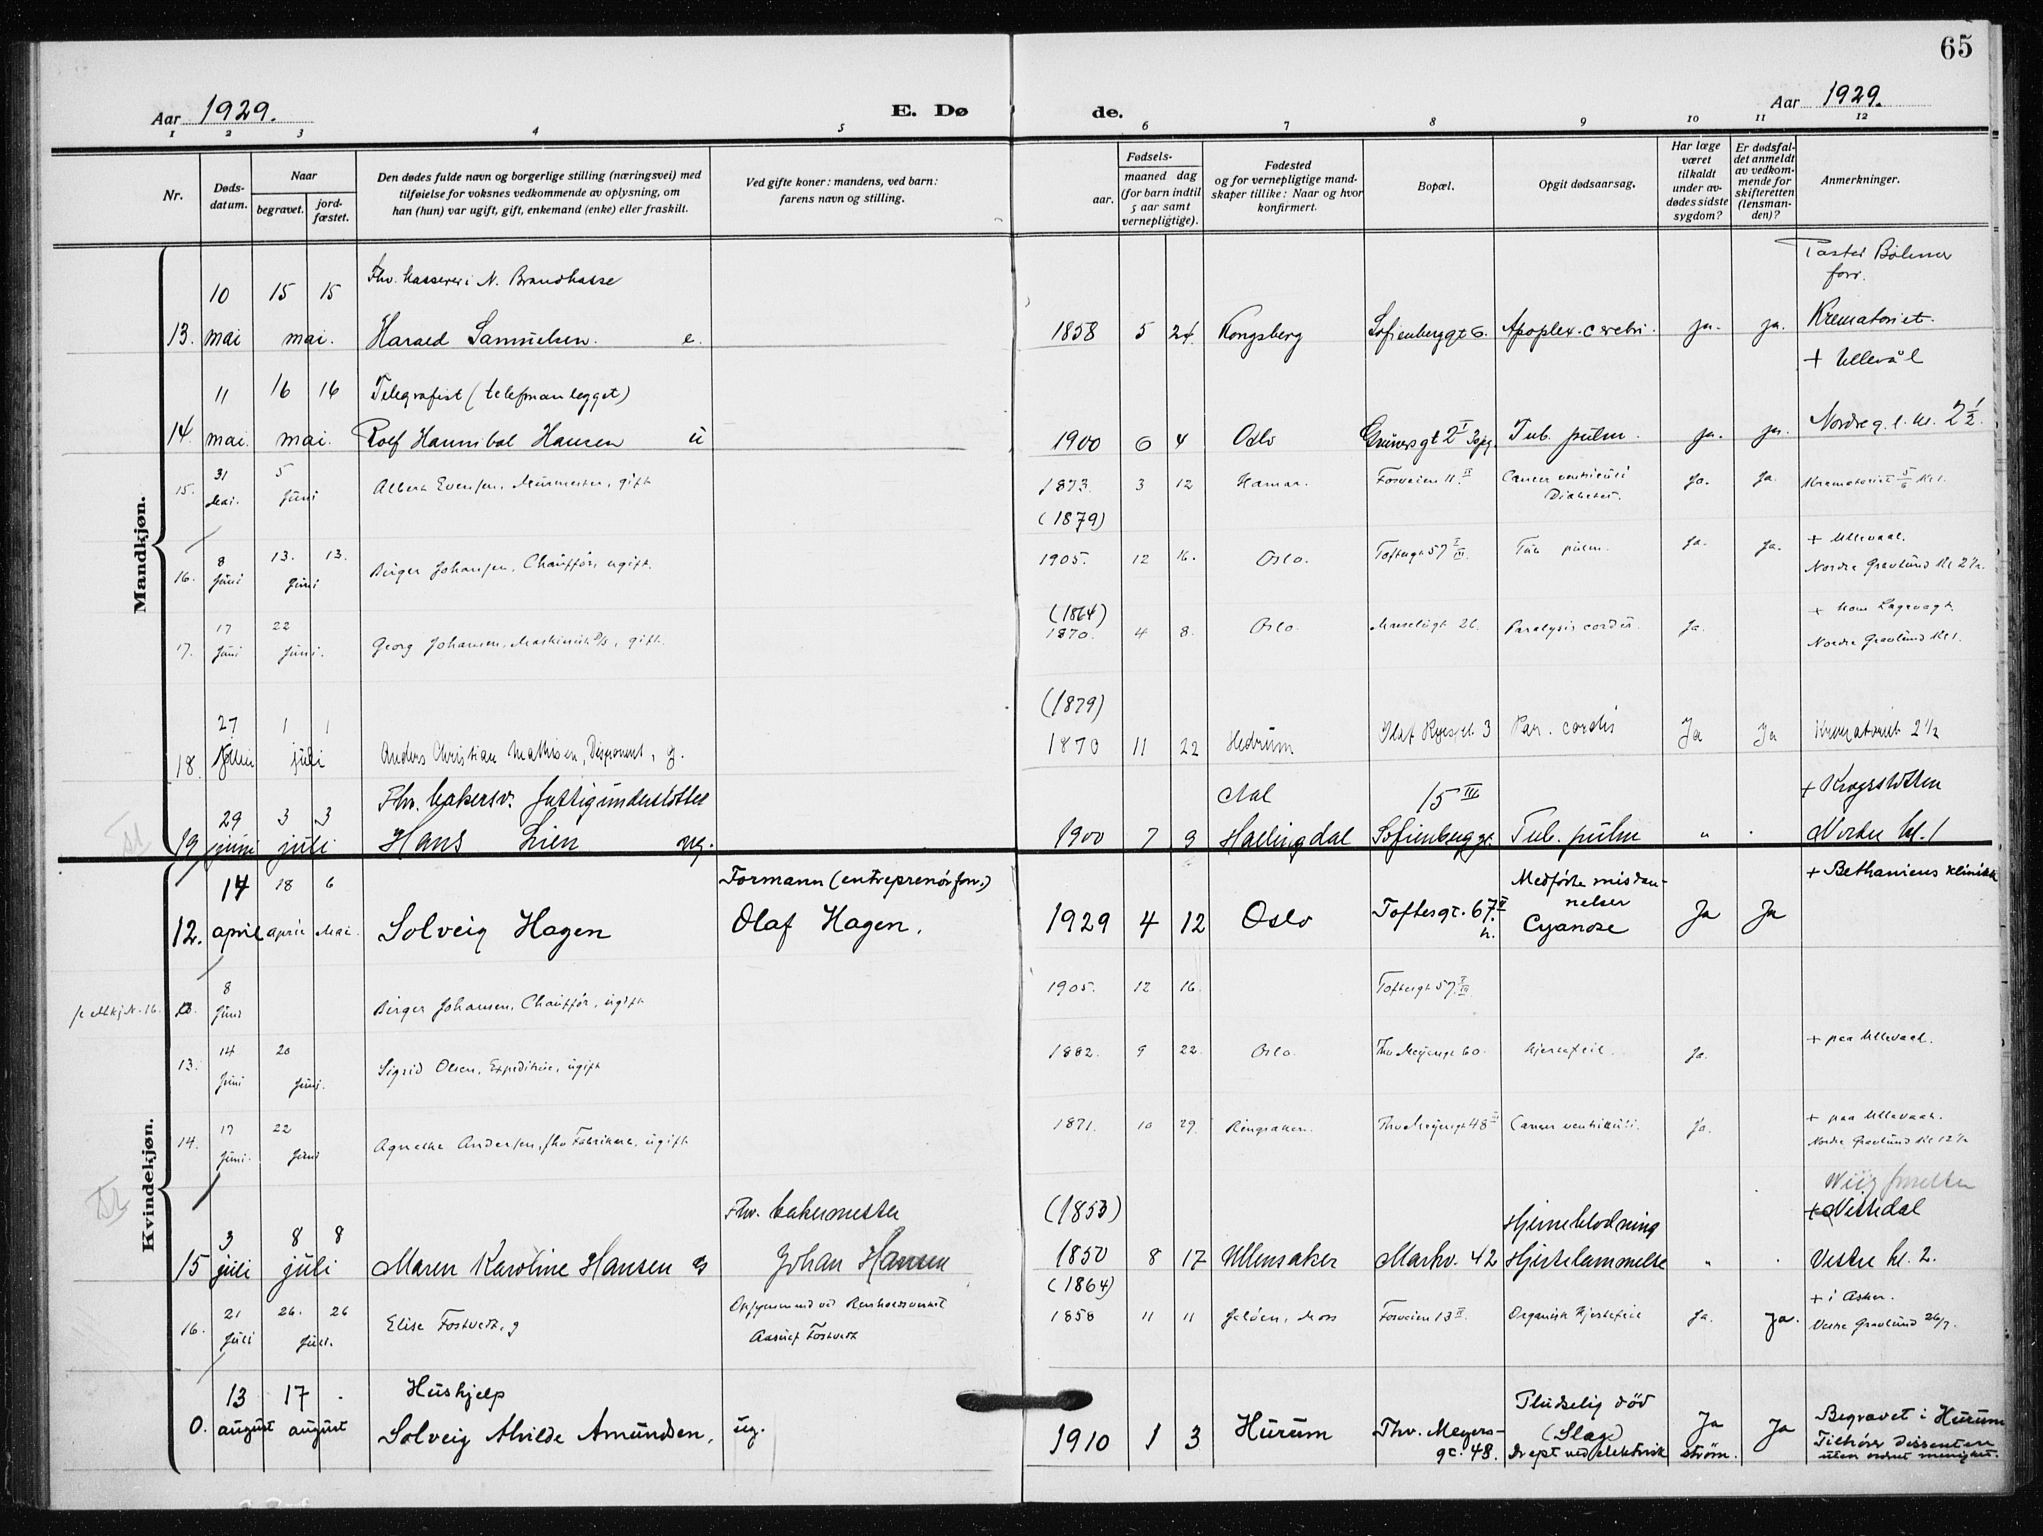 65
Aar 1929.
E. Døde.
Aar 1929.
1 2 3 4 5 6 7 8 9 10 11 12
Nr.
Dødsdatum.
Naar
begravet.
jordfæstet.
Den dødes fulde navn og borgerlige stilling (næringsvei) med
tilføielse for voksnes vedkommende av oplysning, om
han (hun) var ugift, gift, enkemand (enke) eller fraskilt.
Ved gifte koner: mandens, ved barn:
farens navn og stilling.
Fødsels-
aar.
maaned dag
(for barn indtil
5 aar samt
vernepligtige).
Fødested
og for vernepligtige mand-
skaper tillike: Naar og hvor
konfirmert.
Bopæl.
Opgit dødsaarsag.
Har læge
været
tilkaldt
under av-
dødes sidste
sygdom?
Er dødsfal-
det anmeldt
av vedkom-
mende for
skifteretten
(lensman-
den)?
Anmerkninger.
Mandkjøn.
10 15 15 Fhv. kasserer i N. Brandkasse
13. mai mai. Harald Samuelsen. e. 1858 5 24 Kongsberg Sofienberggt 6. Apoplex. cerebri. ja. ja. Krematoriet.
+ Ullevål
11 16 16 Telegrafist (telefonanlegget)
14. mai. mai. Rolf Hannibal Hansen u 1900 6 4 Oslo Tub. pulm. ja. ja. Nordre g. l. kl. 2 1/2.
31 5
15. Mai. Juni Albert Evensen, Murmester, gift 1873. 3 12 Hamar. Fosveien 11. II Cancer ventriculi Diabetes. Ja. Ja. Krematoriet 5/6 kl 1.
(1879)
8 13. 13. + Ullevaal.
16. Juni Juni Birger Johansen, Chauffør, ugift. 1905. 12 16. Oslo. Toftesgt 57 I III. Tub pulm. Ja. Ja. Nordre Gravlund kl 2 1/2.
(1864)
17 22
17. Juni Juni. Georg Johansen, Maskinist D/S, gift. 1870. 4 8. Oslo. 26. Paralysis cordis. Ja. Nordre Gravlund kl 1.
(1879)
27 1 1
18. juli Anders Christian Mathisen, Disponent, g. 1870 11 22 Hedrum Olaf Ryes pl. 3 Par. cordis Ja Ja Krematoriet 2 1/2
29 3 3 Fhv. bakersv. fattigunderstøttet Aal 15 III + Krogstøtten
19. juni juli Hans Lien ug. 1900 7 9 Hallingdal Sofienberggt. Tub. pulm " . Nordre kl. 1
Kvindekjøn.
14 18 6 Formann (entreprenørforr.) Medfødte misdan-
nelser + Bethaniens klinikk
12. april april Mai. Solveig Hagen Olaf Hagen. 1929 4 12 Oslo Toftesgt. 67 II h. Cyanose Ja Ja
8
Juni Birger Johansen, Chauffør, ugift 1905. 12 16. Toftesgt 57 I III.
14 20 + paa Ullevaal.
13. Juni Juni. Sigrid Olsen, Expeditrise, ugift 1882. 9 22. Oslo. Thv Meyersgt 60. Hjertefeil. Ja.
17 22 + paa Ullevaal.
14. Juni. Juni Agnethe Andersen, fhv Fabrikarb, ugift 1871. 10 29. Ringsaker. Thv Meyersgt 48 Cancer ventriculi. Ja. Nordre Gravlund kl 12 1/2
3 8 8 Fhv. bakermester (1853) Hjerneblødning + Nittedal
15 juli juli Maren Karoline Hansen g Johan Hansen 1850 8 17 Ullensaker Markv. 42 Hjertelammelse " . Vestre kl. 2.
(1864)
21 26. 26 Opsynsmand ved Renholdsverket + i Asker.
16. Juli Juli. Elise Fostvedt, g Fostvedt 1858 11 11 Jeløen, Moss Fosveien 13 II. Organisk Hjertefeil Ja. Ja. Vestre Gravlund 26/7.
13 17 . Hushjelp Pludselig død
0. august august Solveig Alvilde Amundsen, ug. 1910 1 3 Hurum Thv. Meyers-
gt. 48. (Slag)
Drept ved elektrisk strøm. Ja Ja Begravet i Hurum
Tilhører dissentere
uten ordnet menighet.